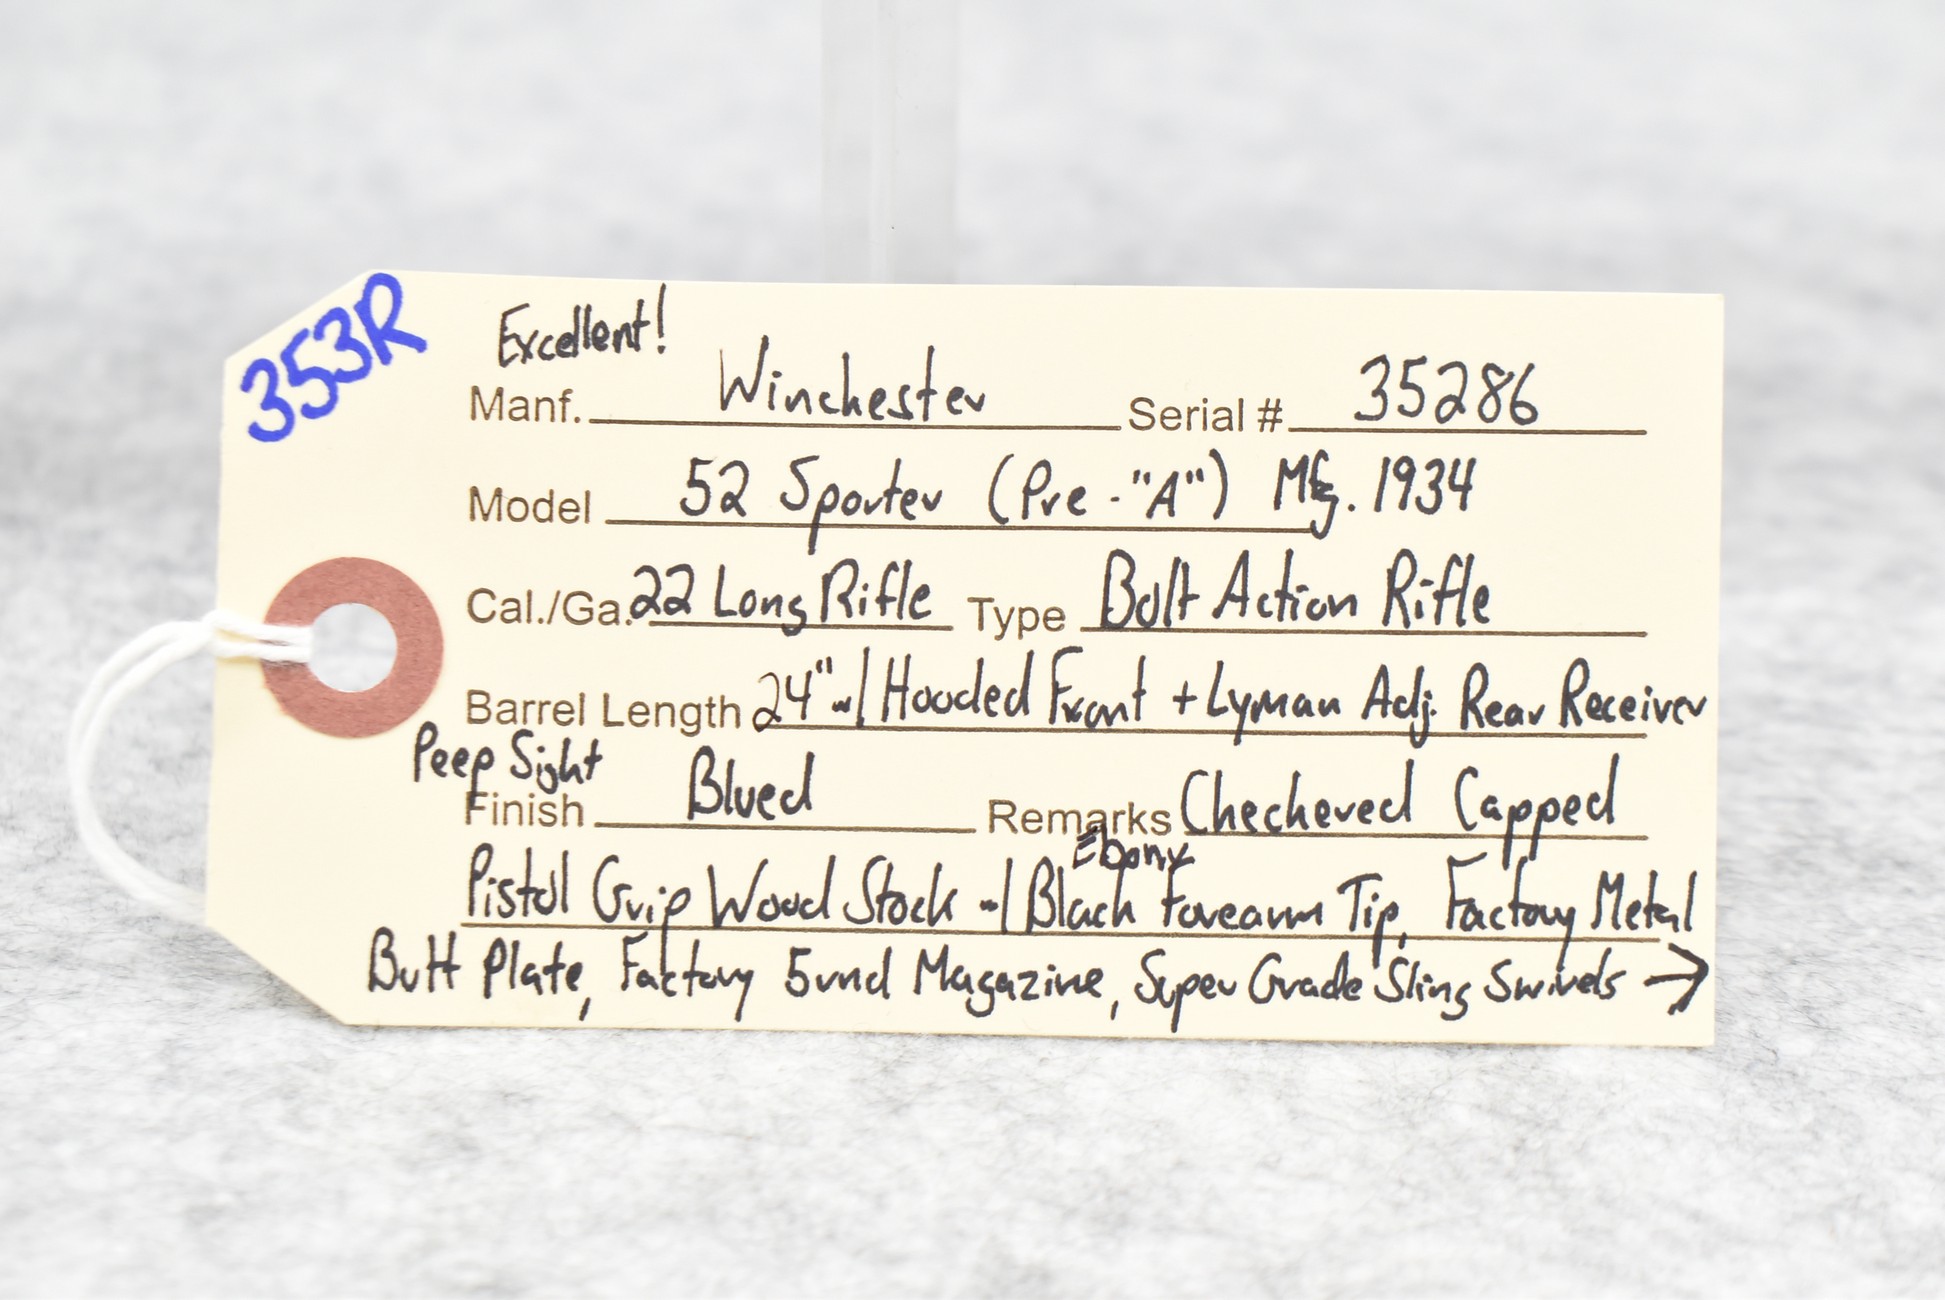 353R
Excellent!
Manf. Winchester Serial # 35286
Model 52 Sporter (Pre-"A") Mfg. 1934
Cal./Ga. 22 Long Rifle Type Bolt Action Rifle
Barrel Length 24" w/ Hooded Front + Lyman Adj. Rear Receiver
Peep Sight
Finish Blued Remarks Checkered Capped
Ebony
Pistol Grip Wood Stock w/ Black Forearm Tip, Factory Metal
Butt Plate, Factory 5rnd Magazine, Super Grade Sling Swivels →